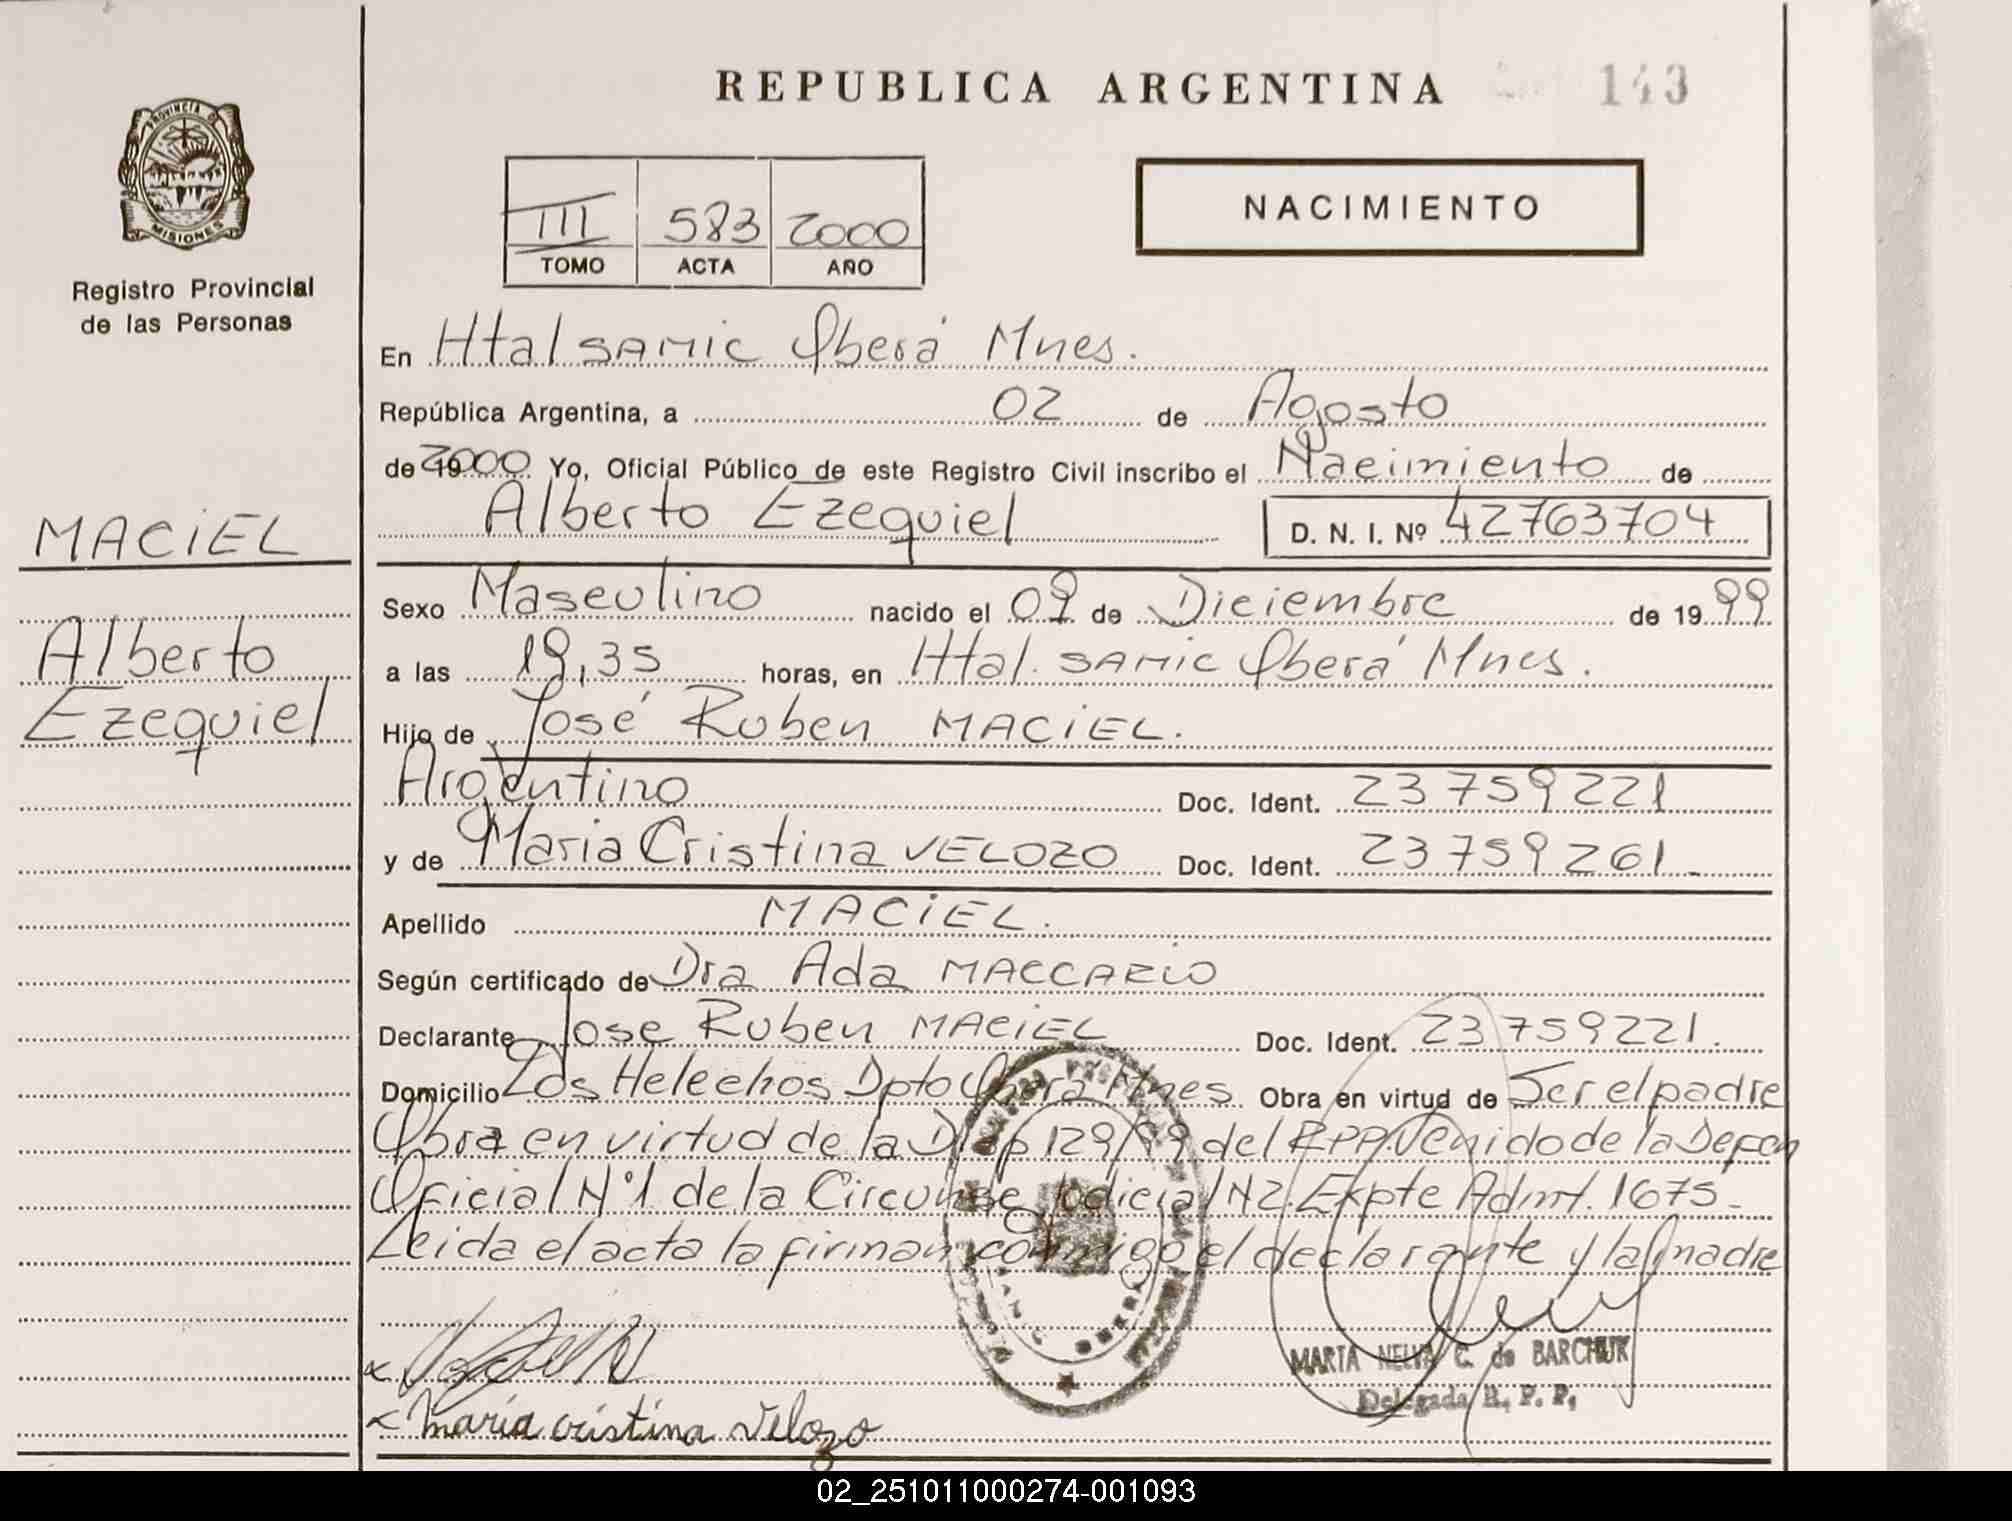 REPUBLICA ARGENTINA
143
PROVINCIA D
MISIONES
Registro Provincial
de las Personas
III 583 2000
TOMO ACTA AÑO
NACIMIENTO
En Htal SAMIC Oberá Mnes.
República Argentina, a 02 de Agosto
de 2000 Yo, Oficial Público de este Registro Civil inscribo el Nacimiento de
Alberto Ezequiel D. N. I. Nº 42763704
MACiEL
Alberto
Ezequiel
Sexo Masculino nacido el 09 de Diciembre de 1999
a las 19,35 horas, en Htal. SAMIC Oberá Mnes.
Hijo de José Ruben MACiEL.
Argentino Doc. Ident. 23759221
y de Maria Cristina VELOZO Doc. Ident. 23759261
Apellido MACiEL.
Según certificado de Dra Ada MACCARIO
Declarante Jose Ruben MACiEL Doc. Ident. 23759221.
Domicilio Los Helechos Dpto Obera Mnes Obra en virtud de Ser el padre
Obra en virtud de la Disp 129/99 del RPP. Venido de la Defen
Oficial Nº1 de la Circunsc Judicial N2. Expte Admt. 1675-
Leida el acta la firman conmigo el declarante y la madre
maria cristina Velozo
MARTA NELVA C. de BARCHUK
Delegada R. P. P.
02_251011000274-001093